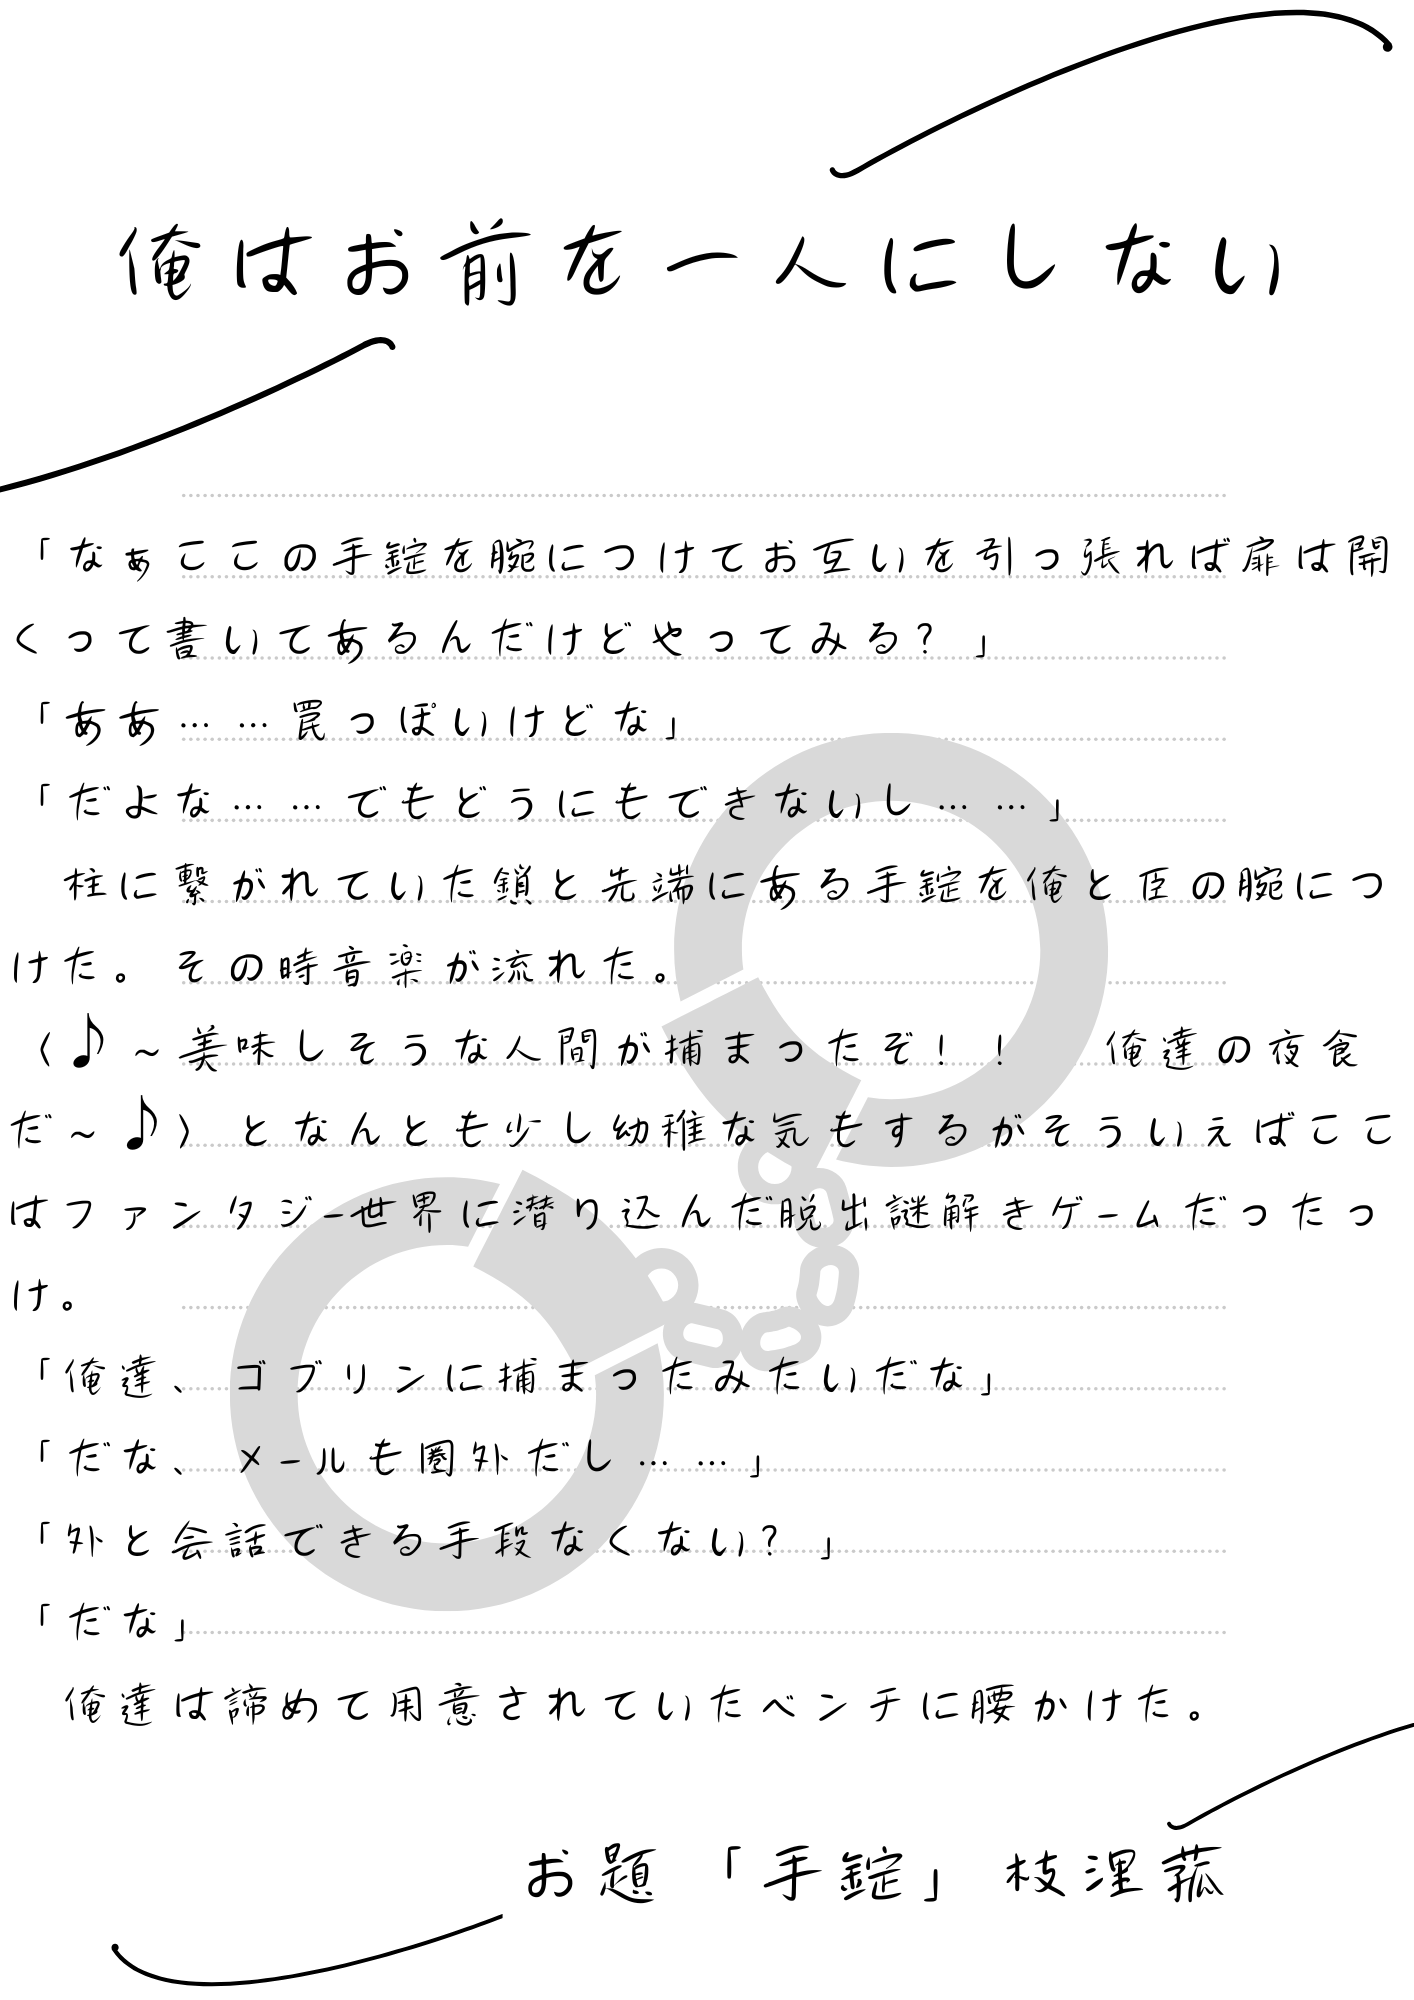 俺はお前を一人にしない
「なぁここの手錠を腕につけてお互いを引っ張れば扉は開
くって書いてあるんだけどやってみる?」
「ああ……罠っぽいけどな」
「だよな……でもどうにもできないし……」
　柱に繋がれていた鎖と先端にある手錠を俺と臣の腕につ
けた。その時音楽が流れた。
〈♪~美味しそうな人間が捕まったぞ!!　俺達の夜食
だ~♪〉となんとも少し幼稚な気もするがそういえばここ
はファンタジー世界に潜り込んだ脱出謎解きゲームだったっ
け。
「俺達、ゴブリンに捕まったみたいだな」
「だな、メールも圏外だし……」
「外と会話できる手段なくない?」
「だな」
　俺達は諦めて用意されていたベンチに腰かけた。
お題「手錠」枝浬菰